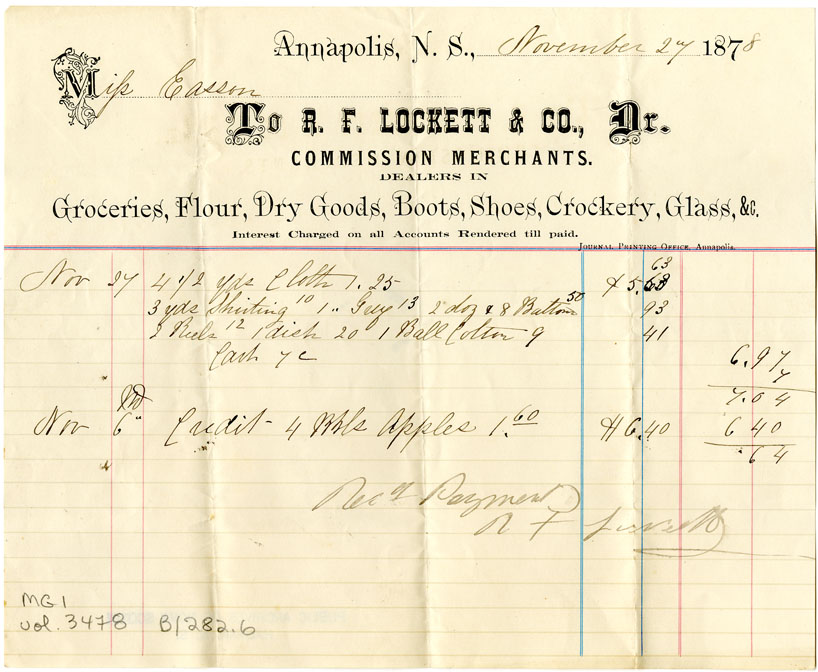 Annapolis, N. S., November 27 1878
Miss Easson
To R. F. LOCKETT & CO., Dr.
COMMISSION MERCHANTS.
DEALERS IN
Groceries, Flour, Dry Goods, Boots, Shoes, Crockery, Glass, &c.
Interest Charged on all Accounts Rendered till paid.
JOURNAL PRINTING OFFICE, Annapolis.
63
Nov 27 4 1/2 yds Cloth 1.25 $5.
3 yds Shirting 10 1 " Grey 13 2 doz & 8 Buttons 50 93
Reels 12 1 dish 20 1 Ball Cotton 9 41
6.97
Cash 7c 7
7.04
Nov 6" Credit 4 Bbls Apples 1.60 $6.40 6 40
.64
Rec'd Payment
R F Lockett
MG1
vol. 3478 B/282.6